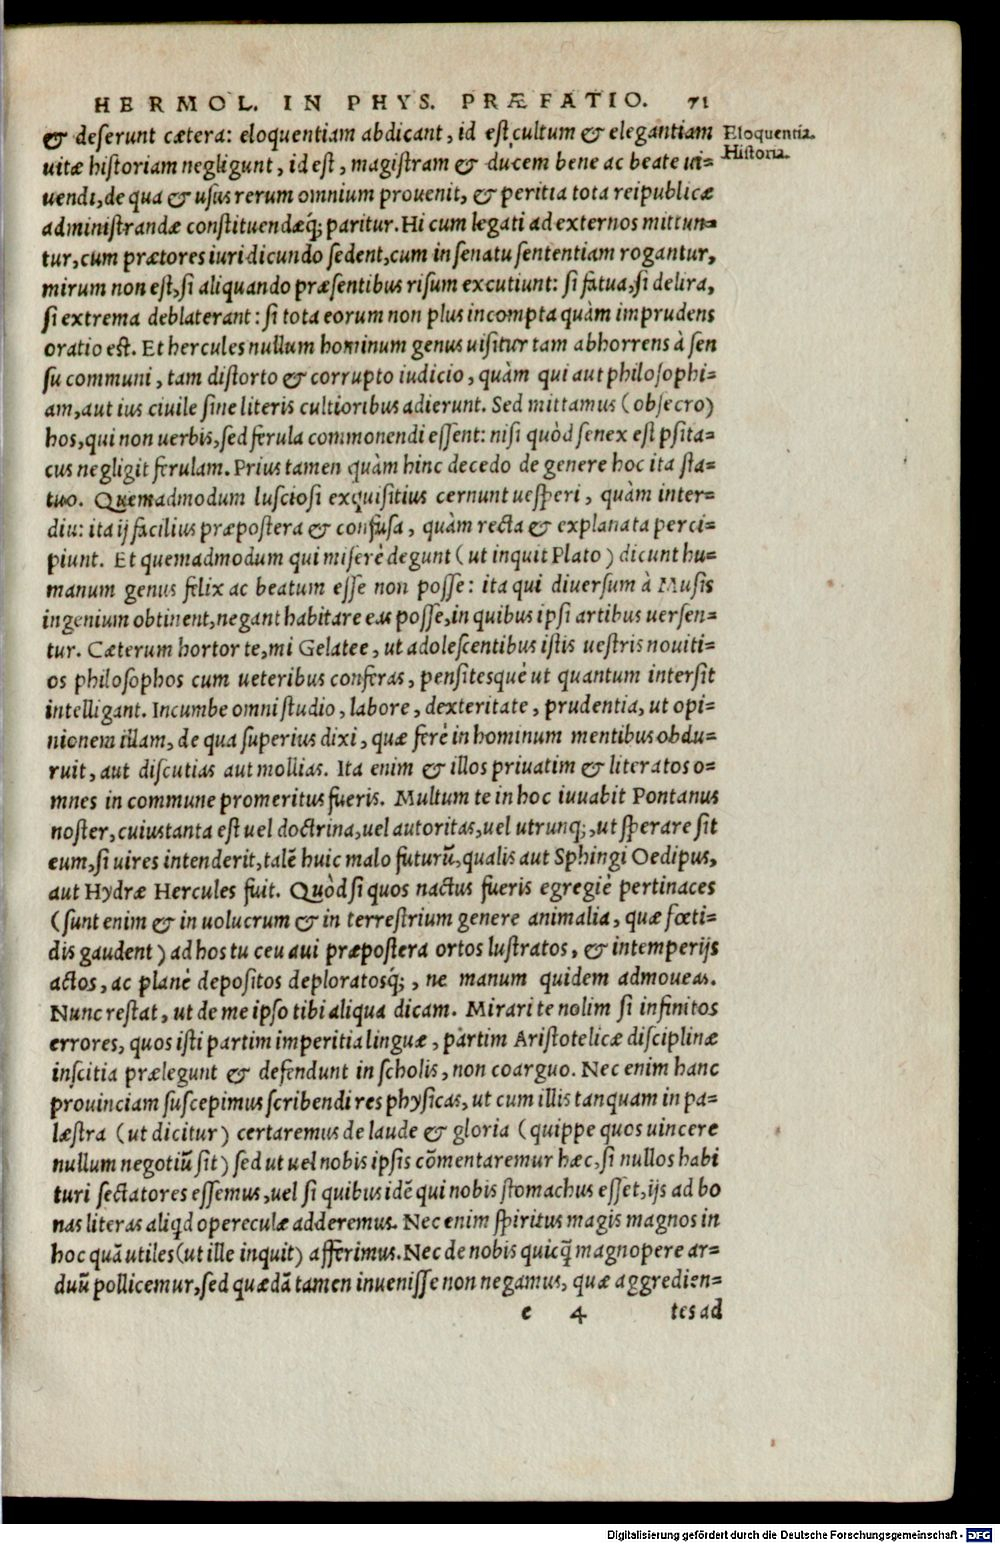 HERMOL. IN PHYS. PRÆFATIO. 71
& deserunt cætera: eloquentiam abdicant, id est, cultum & elegantiam
Eloquentia.
uitæ historiam negligunt, id est, magistram & ducem bene ac beate ui=
Historia.
uendi, de qua & usus rerum omnium prouenit, & peritia tota reipublicæ
administrandæ constituendæq́; paritur. Hi cum legati ad externos mittun=
tur, cum prætores iuri dicundo sedent, cum in senatu sententiam rogantur,
mirum non est, si aliquando præsentibus risum excutiunt: si fatua, si delira,
si extrema deblaterant: si tota eorum non plus incompta quàm imprudens
oratio est. Et hercules nullum hominum genus uisitur tam abhorrens à sen
su communi, tam distorto & corrupto iudicio, quàm qui aut philosophi=
am, aut ius ciuile sine literis cultioribus adierunt. Sed mittamus (obsecro)
hos, qui non uerbis, sed ferula commonendi essent: nisi quòd senex est psita=
cus negligit ferulam. Prius tamen quàm hinc decedo de genere hoc ita sta=
tuo. Quemadmodum lusciosi exquisitius cernunt uesperi, quàm inter=
diu: ita ij facilius præpostera & confusa, quàm recta & explanata perci=
piunt. Et quemadmodum qui miserè degunt (ut inquit Plato) dicunt hu=
manum genus felix ac beatum esse non posse: ita qui diuersum à Musis
ingenium obtinent, negant habitare eas posse, in quibus ipsi artibus uersen=
tur. Cæterum hortor te, mi Gelatee, ut adolescentibus istis uestris nouiti=
os philosophos cum ueteribus conferas, pensitesque ut quantum intersit
intelligant. Incumbe omni studio, labore, dexteritate, prudentia, ut opi=
nionem illam, de qua superius dixi, quæ ferè in hominum mentibus obdu=
ruit, aut discutias aut mollias. Ita enim & illos priuatim & literatos o=
mnes in commune promeritus fueris. Multum te in hoc iuuabit Pontanus
noster, cuius tanta est uel doctrina, uel autoritas, uel utrunq;, ut sperare sit
eum, si uires intenderit, talẽ huic malo futurũ, qualis aut Sphingi Oedipus,
aut Hydræ Hercules fuit. Quòd si quos nactus fueris egregiè pertinaces
(sunt enim & in uolucrum & in terrestrium genere animalia, quæ fœti=
dis gaudent) ad hos tu ceu aui præpostera ortos lustratos, & intemperijs
actos, ac planè depositos deploratosq́;, ne manum quidem admoueas.
Nunc restat, ut de me ipso tibi aliqua dicam. Mirari te nolim si infinitos
errores, quos isti partim imperitia linguæ, partim Aristotelicæ disciplinæ
inscitia prælegunt & defendunt in scholis, non coarguo. Nec enim hanc
prouinciam suscepimus scribendi res physicas, ut cum illis tanquam in pa=
læstra (ut dicitur) certaremus de laude & gloria (quippe quos uincere
nullum negotiũ sit) sed ut uel nobis ipsis cõmentaremur hæc, si nullos habi
turi sectatores essemus, uel si quibus idẽ qui nobis stomachus esset, ijs ad bo
nas literas aliqd operculæ adderemus. Nec enim spiritus magis magnos in
hoc quã utiles (ut ille inquit) afferimus. Nec de nobis quicq̃ magnopere ar=
duũ pollicemur, sed quædã tamen inuenisse non negamus, quæ aggredien=
e 4 tes ad
Digitalisierung gefördert durch die Deutsche Forschungsgemeinschaft - DFG